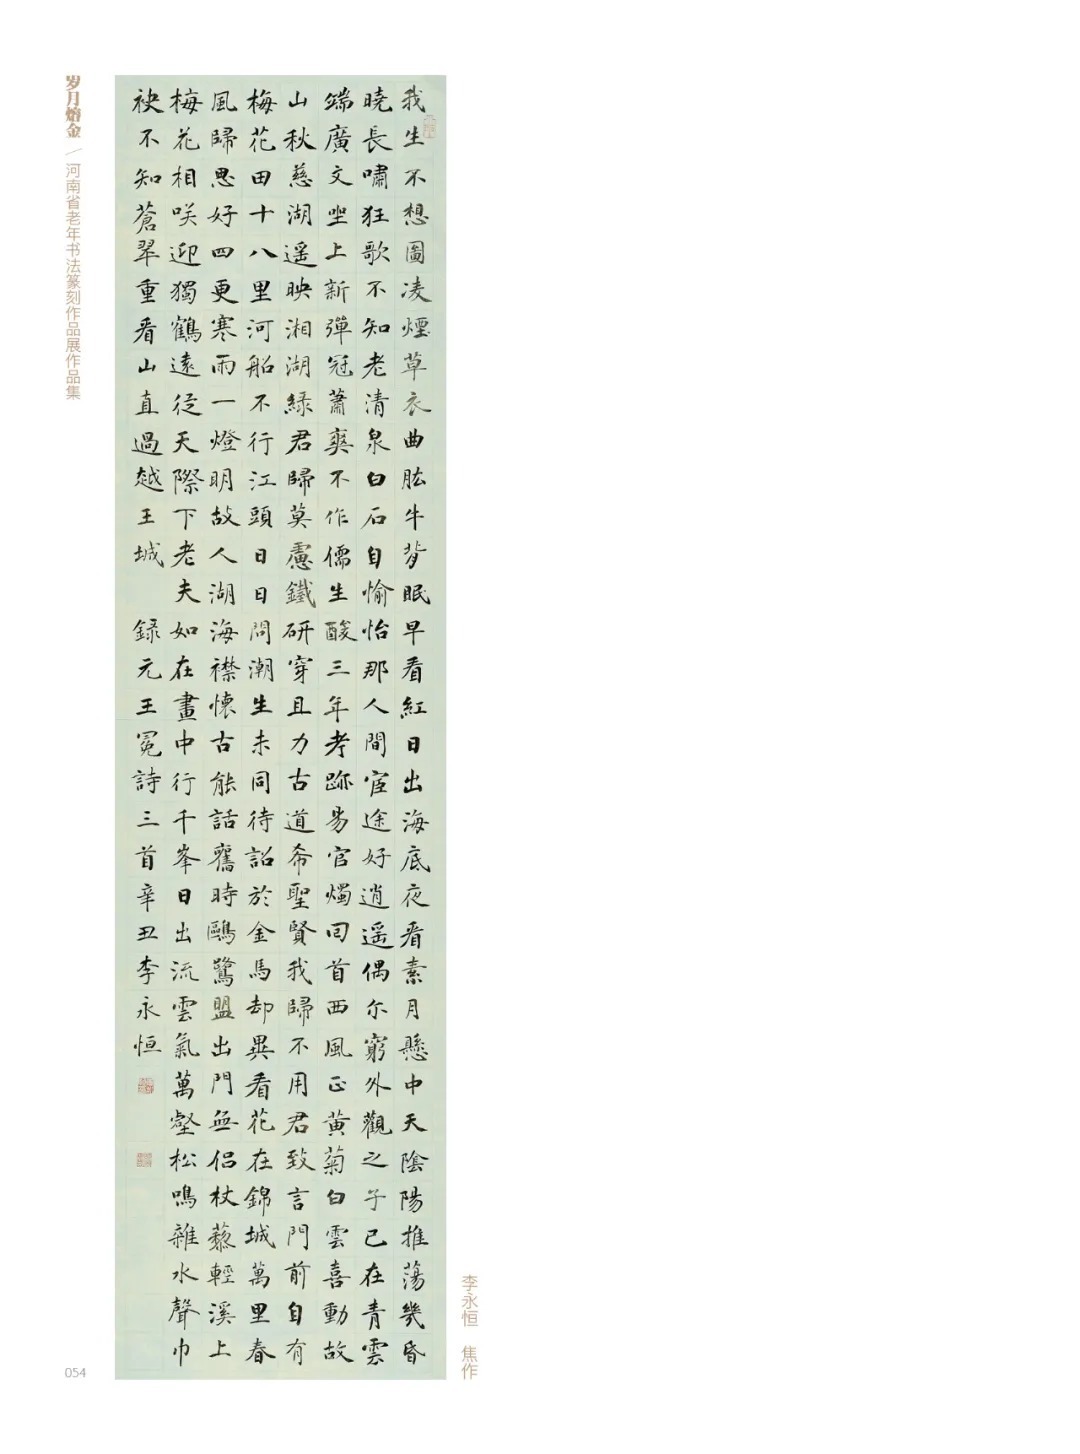 岁月熔金／河南省老年书法篆刻作品展作品集
我生不想圖凌煙草衣曲肱牛背眠早看紅日出海底夜看素月懸中天陰陽推蕩幾昏
曉長嘯狂歌不知老清泉白石自愉怡那人間宦途好逍遥偶尔窮外觀之子已在青雲
端廣文坐上新彈冠蕭爽不作儒生酸三年考跡易官燭回首西風正黄菊白雲喜動故
山秋慈湖遥映湘湖緑君歸莫慮鐵研穿且力古道希聖賢我歸不用君致言門前自有
梅花田十八里河船不行江頭日日問潮生未同待詔於金馬却異看花在錦城萬里春
風歸思好四更寒雨一燈明故人湖海襟懷古能話舊時鷗鷺盟出門無侣杖藜輕溪上
梅花相咲迎獨鶴遠從天際下老夫如在畫中行千峯日出流雲氣萬壑松鳴雜水聲巾
袂不知蒼翠重看山直過越王城 録元王冕詩三首辛丑李永恒
李永恒 焦作
054